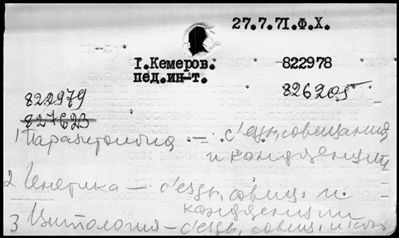 27.7.71.Ф.Х.
I.Кемеров. 822978
пед.ин-т.
826205
822979
827623
1) Паразитология — съезды, совещания
и конференции
2 Генетика — съезды, совещ. и
конференции
3 Цитология — съезды, совещ. и конф